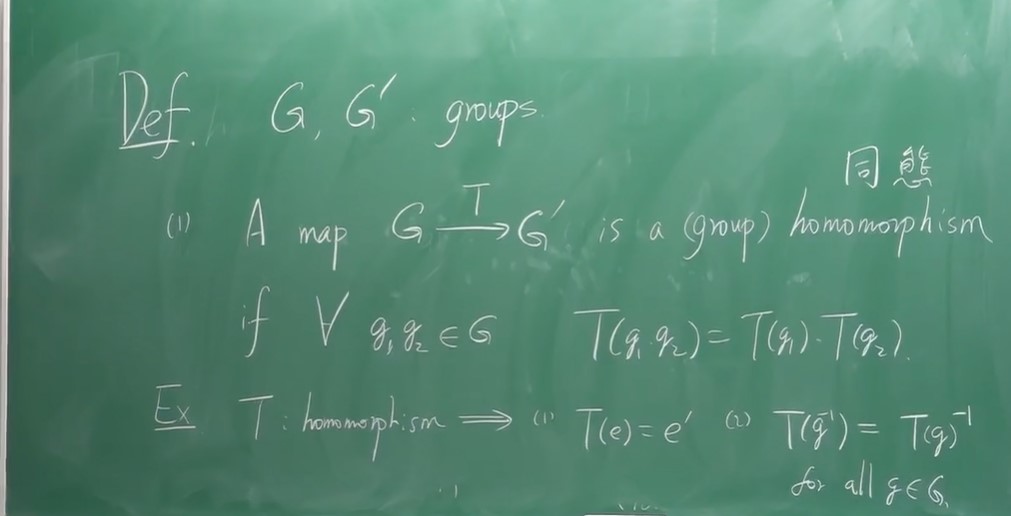 Def. G, G′ : groups.
同態
(1) A map G —T→ G′ is a (group) homomorphism
if ∀ g₁, g₂ ∈ G T(g₁·g₂) = T(g₁)·T(g₂).
Ex T : homomorphism ⟹ (1) T(e) = e′ (2) T(g⁻¹) = T(g)⁻¹
for all g ∈ G.